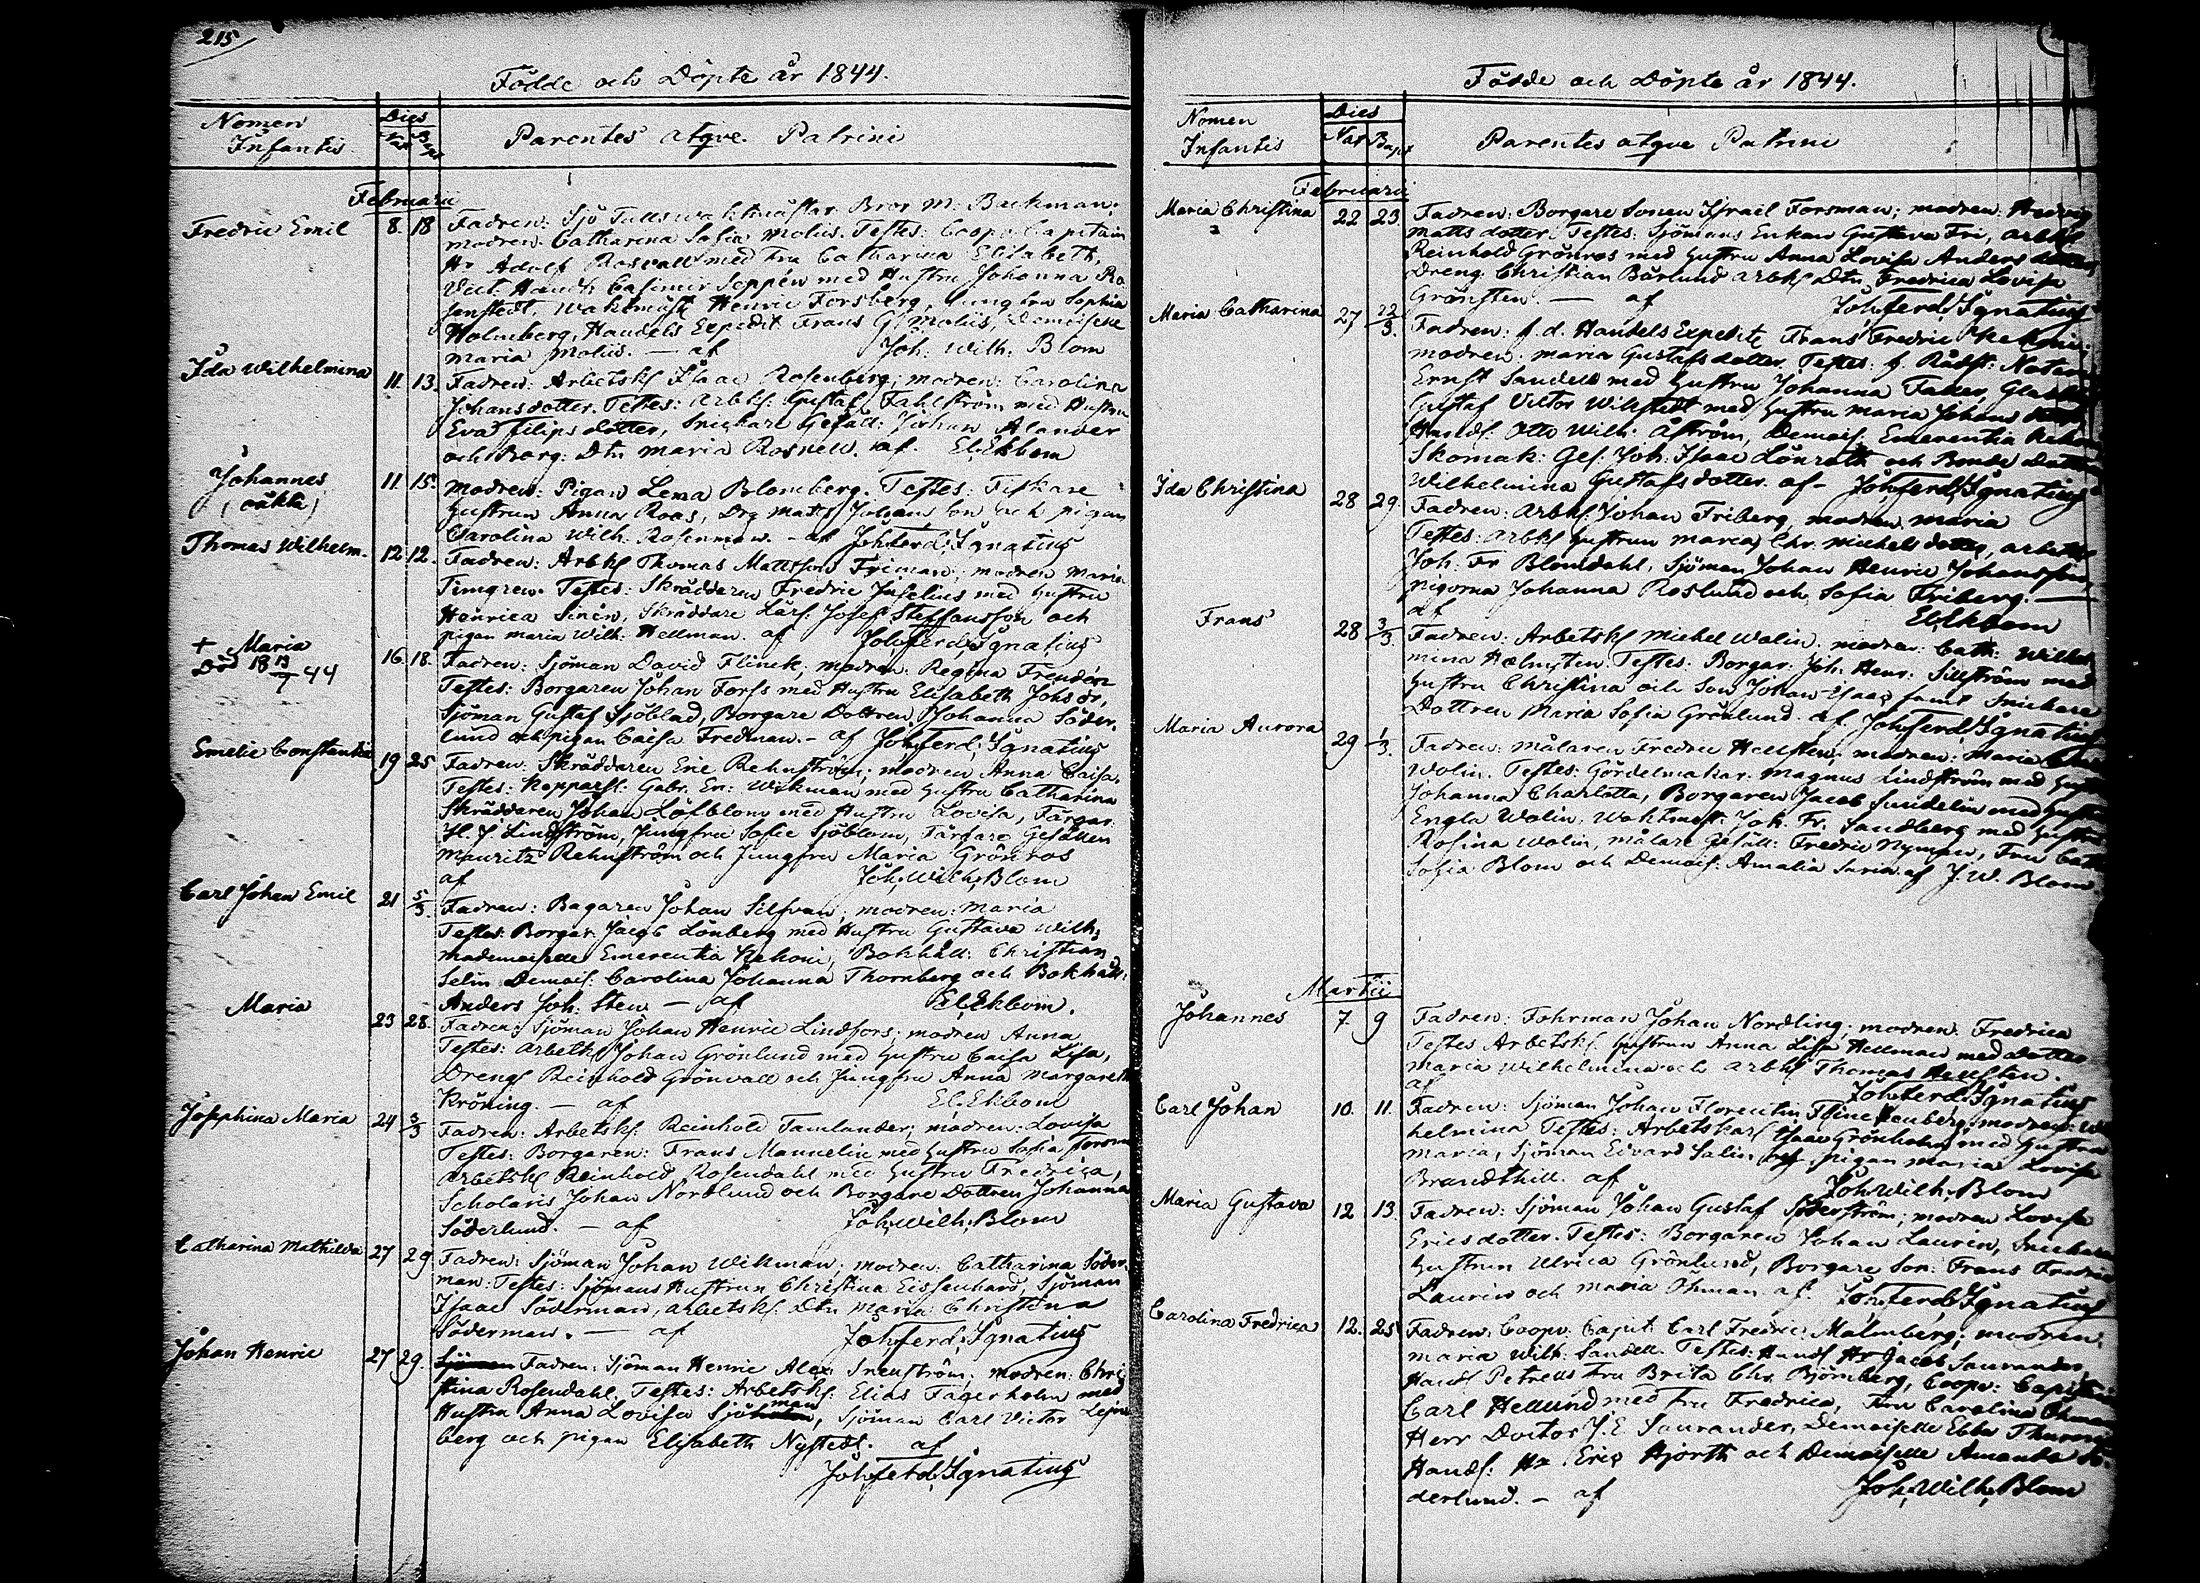 215
Födde och Döpte år 1844.
Nomen Infantis
Dies
Nat Bapt
Parentes atqve Patrini
Februarii
Fredric Emil 8. 18 Fadren: Sjö Tullswaktmästar Bror M: Backman;
modren: Catharina Sofia Molus. Testes: Coopv. Capitain
Hr Adolf Rosvall med Fru Catharina Elisabeth,
Vict. Handl: Casimir Seppén med Hustru Johanna Ro-
senstedt, Waktmäst Henric Forsberg, Jungfru Sophia
Holmberg, Handels Expedit Frans G. Moliis, Demoiselle
Maria Moliis. — af Joh: Wilh: Blom
Ida Wilhelmina 11. 13. Fadren: Arbetsk Isaac Rosenberg; modren: Carolina
Johansdotter. Testes: Arbk: Gustaf Fahlström med Hustru
Eva Filipsdotter, Snickare Gesäll: Johan Alander
och Borg: Dtn Maria Rosnell. af. El. Ekbom
Johannes 11. 15. Modren: Pigan Lena Blomberg. Testes: Fiskare
(oäkta) Hustrun Anna Roos, Drg Matts Johans son och pigan
Carolina Wilh. Rosenman. - af Joh. Ferd. Ignatius
Thomas Wilhelm. 12. 12. Fadren: Arbk Thomas Mattsson Friman; modren Maria
Timgren. Testes: Skräddaren Fredric Juselius med Hustru
Henrica Sinén, Skräddare Lärl: Josef Steffansson och
pigan Maria Wilh: Hellman. af Joh. Ferd. Ignatius
+ Maria 16. 18. Fadren: Sjöman David Flinck; modren: Regina Freudén
Död 18 13/7 44 Testes: Borgaren Johan Forss med Hustru Elisabeth Johs dr,
Sjöman Gustaf Sjöblad, Borgare Dottren Johanna Söder-
lund och pigan Caisa Fredman. - af Joh. Ferd. Ignatius
Emelie Constantia 19 25 Fadren: Skräddaren Eric Rehnström; modren Anna Caisa.
Testes: Kopparsl: Gabr. Er: Wikman med Hustru Catharina
Skräddaren Johan Löfblom med Hustru Lovisa, Färgar.
H. J. Lindström, Jungfru Sofie Sjöblom, Färgare Gesällen
Mauritz Rehnström och Jungfru Maria Grönros
af Joh. Wilh. Blom
Carl Johan Emil 21 5/3. Fadren: Bagaren Johan Silfvan; modren: Maria
Testes: Borgar. Jacob Lönberg med Hustru Gustava Wilh;
Mademoiselle Emerentia Kekoni, Bokhåll: Christian
Selin Demois: Carolina Johanna Thornberg och Bokhåll:
Anders Joh: Sten — af El. Ekbom.
Maria 23 28. Fadren: Sjöman Johan Henric Lindfors; modren Anna
Testes: Arbetk Johan Grönlund med Hustru Caisa Lisa,
Drengs Reinhold Grönvall och Jungfru Anna Margareth
Kröning. — af El. Ekbom
Josephina Maria 24 3/3 Fadren: Arbetsk. Reinhold Tamlander; modren: Lovisa
Testes: Borgaren: Frans Mannelin med Hustru Sofia Forsm
Arbetsk Reinhold Rosendahl med Hustru Fredrica,
Scholaris Johan Nordlund och Borgare Dottren Johanna
Söderlund. — af Joh. Wilh. Blom
Catharina Mathilda 27 29 Fadren: Sjöman Johan Wikman; modren: Catharina Söder
man: Testes: Sjömans Hustrun Christina Eissenhard, Sjöman
Isaac Söderman, Arbetsk: Dtn Maria Christina
Söderman. — af Joh. Ferd. Ignatius
Johan Henric 27 29. Sjöman Fadren: Sjöman Henric Alex: Snenström; modren: Chri
stina Rosendahl. Testes: Arbetsk: Elias Fägerholm med
Hustru Anna Lovisa Sjöman, Sjöman Carl Victor
berg och pigan Elisabeth Nystedt. af
Joh. Ferd. Ignatius
Födde och Döpte år 1844.
Nomen Infantis
Dies
Nat Bapt
Parentes atqve Patrini
Februarii
Maria Christina 22 23. Fadren: Borgare Sonen Israil Forsman; modren: Hedvig
Mattsdotter. Testes: Sjömans Enkan Gustava Fri, Arbk
Reinhold Grönros med Hustru Anna Lovisa Anders dotter
Dreng Christian Bärlund Arbk Dtn Fredrica Lovisa
Grönsten. — af Joh. Ferd. Ignatius
Maria Catharina 27 22/3. Fadren: f. d. Handels Expedite Frans Fredric Kekoni
modren: Maria Gustafsdotter, Testes: f. Rådst: Notari
Ernst Sandell med Hustru Johanna Fader,
Gustaf Victor Wikstedt med Hustru Maria Johans
Handl. Otto Wilh: Åström, Demois. Emerentia Kekoni
Skomak: Ges. Joh: Isaac Lönroth och Bonde Dottr
Wilhelmina Gustafsdotter. af - Joh. Ferd. Ignatius
Ida Christina 28 29. Fadren: Arbk Johan Friberg, modren Maria
Testes: Arbk Hustrun Maria Chr. Michelsdotter, Arbetsk
Joh: Fr Blomdahl, Sjöman Johan Henric Johansson
pigorna Johanna Roslund och Sofia Friberg. —
af El. Ekbom
Frans 28 3/3. Fadren: Arbetsk Michel Walin: modren: Cath: Wilhel
mina Holmsten. Testes: Borgar. Joh. Henr: Sillström med
Hustru Christina och Son Johan Esaas samt Snickare
Dottren Maria Sofia Grönlund. af Joh. Ferd. Ignatius
Maria Aurora 29 1/3. Fadren: Målaren Fredric Hellsten, modren: Maria
Wolin. Testes: Gördelmakar. Magnus Lindström med Hustru
Johanna Charlotta, Borgaren Jacob Sundelin med Hustru
Engla Walin, Waktmast. Joh. Fr. Sandberg med Hustru
Rosina Walin, Målare Gesäll: Fredric Nyman, Fru Cath
Sofia Blom och Demois: Amalia Saria. af J. W. Blom
Martii
Johannes 7. 9 Fadren: Fohrman Johan Nordling; modren: Fredrica
Testes Arbetsk. Hustrun Anna Lisa Hellman med Dotter
Maria Wilhelmina och Arbk Thomas Hellsten.
af Joh. Ferd. Ignatius
Carl Johan 10. 11. Fadren: Sjöman Johan Florentin modren: Wil
helmina Testes: Arbetskar Isaac Grönholm med Hustru
Maria, Sjöman Edvard Salin pigan Maria Lovisa
Brandthill. af Joh. Wilh. Blom
Maria Gustava 12 13. Fadren: Sjöman Johan Gustaf Söderström; modren Lovisa
Ericsdotter. Testes: Borgaren Johan Laurén, Snickare
Hustrun Ulrica Grönlund, Borgare Son: Frans Fredric
Laurén och Maria Öhman. af. Joh. Ferd. Ignatius
Carolina Fredrica 12. 25 Fadren: Coopv. Capit: Carl Fredric Malmberg; modren:
Maria Wilh: Sandell. Testes: Handl Hr Jacob Saurander
Handl Petrell Fru Brita Chr. Björnberg, Coopv: Capitain
Carl Hellund med Fru Fredrica, Fru Carolina Öhman
Herr Doctor J. E. Saurander, Demoiselle Ebba Thuren
Handl: Hr Eric Hjorth och Demoiselle Amanda Sö-
derlund. — af Joh. Wilh. Blom